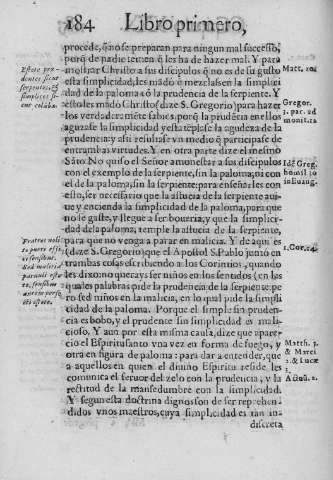 184 Libro primero,
procede, q̃ no se preparan para ningun mal successo,
porq̃ de nadie temen q̃ les ha de hazer mal. Y para
mostrar Christo a sus discipulos q̃ no es de su gusto
esta simplicidad, les mãdò q̃ mezclassen la simplici
dad de la paloma cõ la prudencia de la serpiente. Y
esto les mãdò Christo (dize S. Gregorio) para hazer
los verdaderamẽte sabios: porq̃ la prudẽcia en ellos
aguzasse la simplicidad y esta tẽplasse la agudeza de la
prudencia: y assi resultasse vn medio q̃ participasse de
entrambas virtudes. Y en otra parte dize el mesmo
Sãto. No quiso el Señor amonestar a sus discipulos
con el exemplo de la serpiente, sin la paloma, ni con
el de la paloma, sin la serpiente: para enseñarles con
esto, ser necessario que la astucia de la serpiente auiue
y encienda la simplicidad de la paloma, para que
no se gaste, y llegue a ser bouerria; y que la simplici-
dad de la paloma, temple la astucia de la serpiente,
para que no venga a parar en malicia. Y de aqui es
(dize S. Gregorio) que el Apostol S. Pablo juntò en
trambas cosas escribiendo a los Corintios, quando
les dixo: no querays ser niños en los sentidos (en las
quales palabras pide la prudencia de la serpiente) pe
ro sed niños en la malicia, en lo qual pide la simpli-
cidad de la paloma. Porque el simple sin pruden-
cia es bobo, y el prudente sin simplicidad es mali-
cioso. Y aun por esta misma causa, dize que apare-
cio el Espiritusanto vna vez en forma de fuego, y
otra en figura de paloma: para dar a entender, que
a aquellos en quien el diuino Espiritu reside, les
comunica el feruor del zelo con la prudencia, y la
rectitud de la mansedumbre con la simplicidad.
Y segun esta doctrina dignos son de ser reprehen-
didos vnos maestros, cuya simplicidad es tan in-
discreta
Estote pru-
dentes sicut
serpentes, et
simplices si-
cut columbæ.
Matt. 10.
Gregor.
3. par. ad
monit. 12
Idẽ Greg.
homil. 30
in Euang.
1. Cor. 14.
Matth. 3.
& Marci
1. & Lucæ
Actuũ. 2.